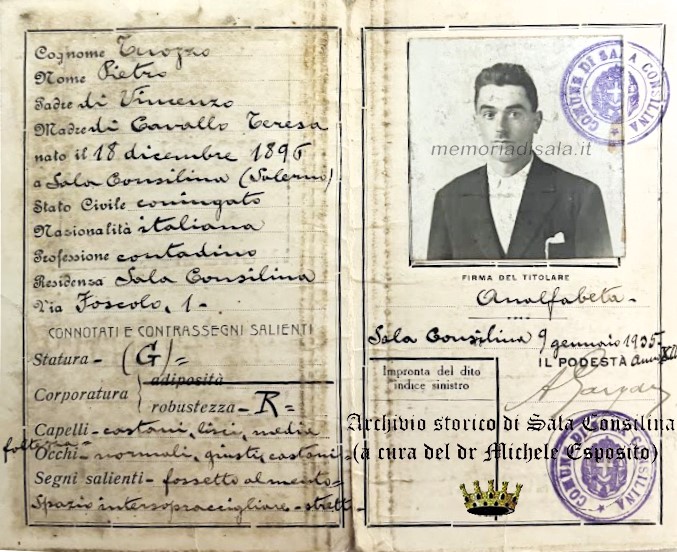 Cognome Tuozzo
Nome Pietro
Padre di Vincenzo
Madre di Cavallo Teresa
nato il 18 dicembre 1896
a Sala Consilina (Salerno)
Stato Civile coniugato
Nazionalità italiana
Professione contadino
Residenza Sala Consilina
Via Foscolo, 1 -
CONNOTATI E CONTRASSEGNI SALIENTI
Statura - (G) =
Corporatura
adiposità
robustezza - R =
Capelli - castani, lisci, media
foltezza -
Occhi - normali, giusti, castani
Segni salienti - fossetto al mento =
Spazio intersopraccigliare - strett
COMUNE DI SALA CONSILINA
memoriadisala.it
FIRMA DEL TITOLARE
Analfabeta -
Sala Consilina 9 gennaio 1935
IL PODESTÀ anno XIII
Impronta del dito
indice sinistro
Archivio storico di Sala Consilina
(a cura del dr Michele Esposito)
COMUNE DI SALA CONSILINA